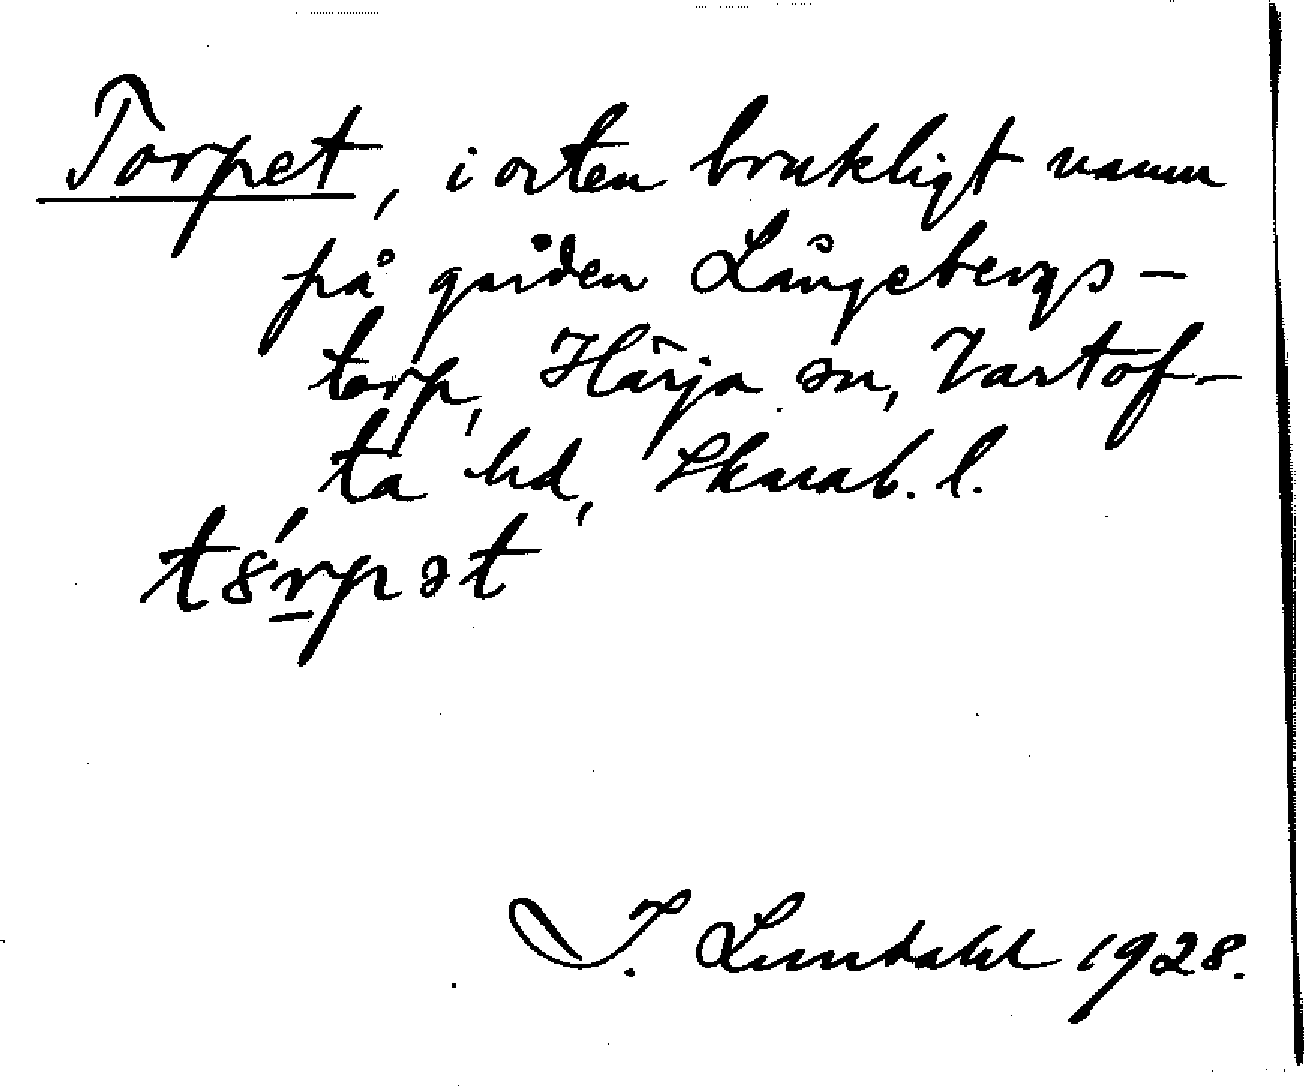 Torpet, i orten brukligt namn
på gården Långebergs-
torp, Härja sn, Vartof-
ta hd, Skarab. l.
t8́r̲pət
I. Lundahl 1928.